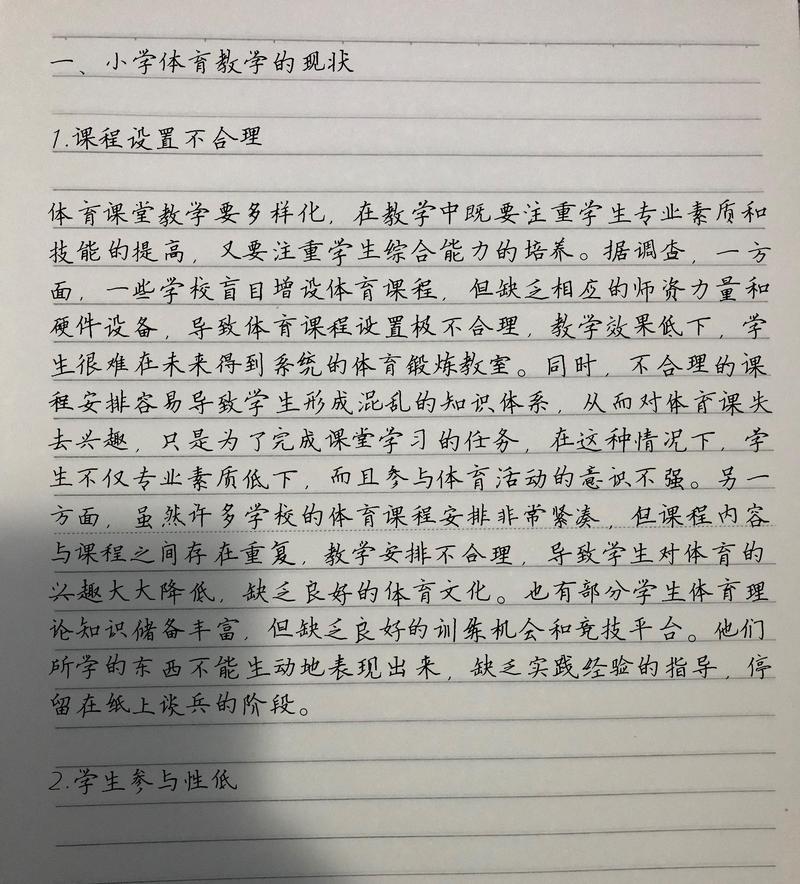 一、小学体育教学的现状
1.课程设置不合理
体育课堂教学要多样化，在教学中既要注重学生专业素质和
技能的提高，又要注重学生综合能力的培养。据调查，一方
面，一些学校盲目增设体育课程，但缺乏相应的师资力量和
硬件设备，导致体育课程设置极不合理，教学效果低下，学
生很难在未来得到系统的体育锻炼教室。同时，不合理的课
程安排容易导致学生形成混乱的知识体系，从而对体育课失
去兴趣，只是为了完成课堂学习的任务，在这种情况下，学
生不仅专业素质低下，而且参与体育活动的意识不强。另一
方面，虽然许多学校的体育课程安排非常紧凑，但课程内容
与课程之间存在重复，教学安排不合理，导致学生对体育的
兴趣大大降低，缺乏良好的体育文化。也有部分学生体育理
论知识储备丰富，但缺乏良好的训练机会和竞技平台。他们
所学的东西不能生动地表现出来，缺乏实践经验的指导，停
留在纸上谈兵的阶段。
2.学生参与性低